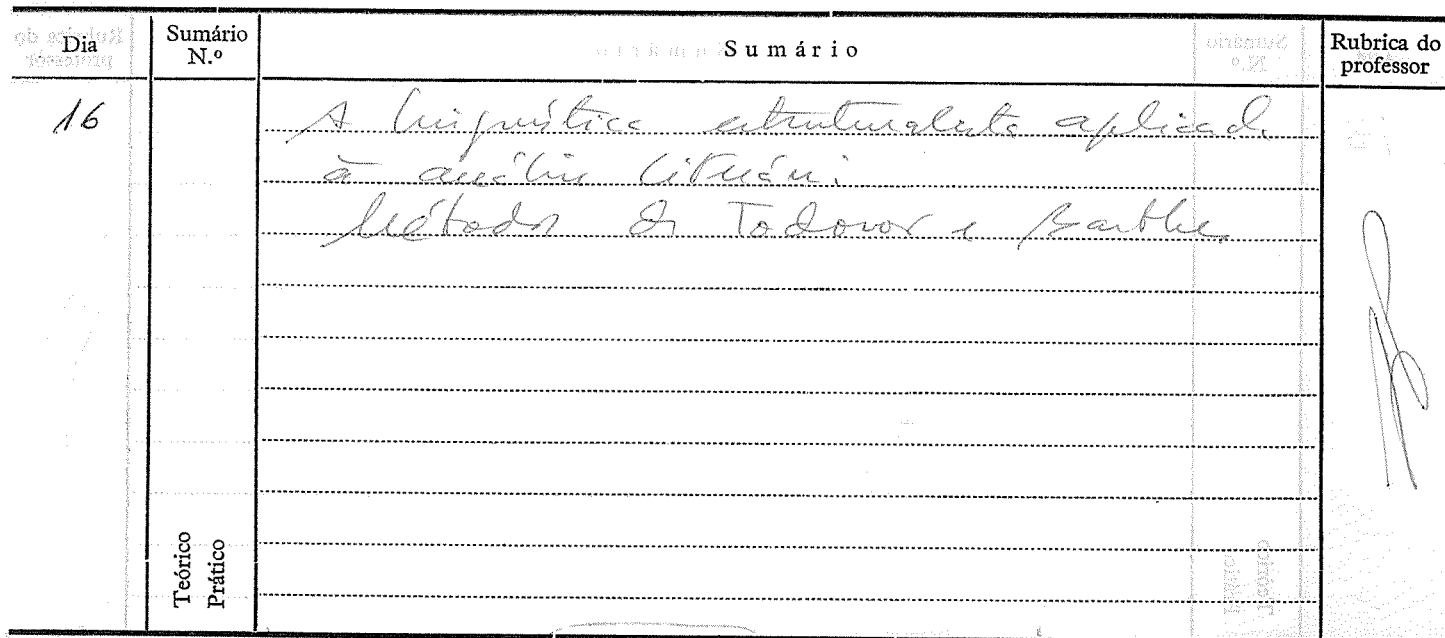 Dia Sumário N.º Sumário Rubrica do professor
16 A linguística estruturalista aplicada
à análise literária.
Métodos de Todorov e Barthes
Teórico
Prático